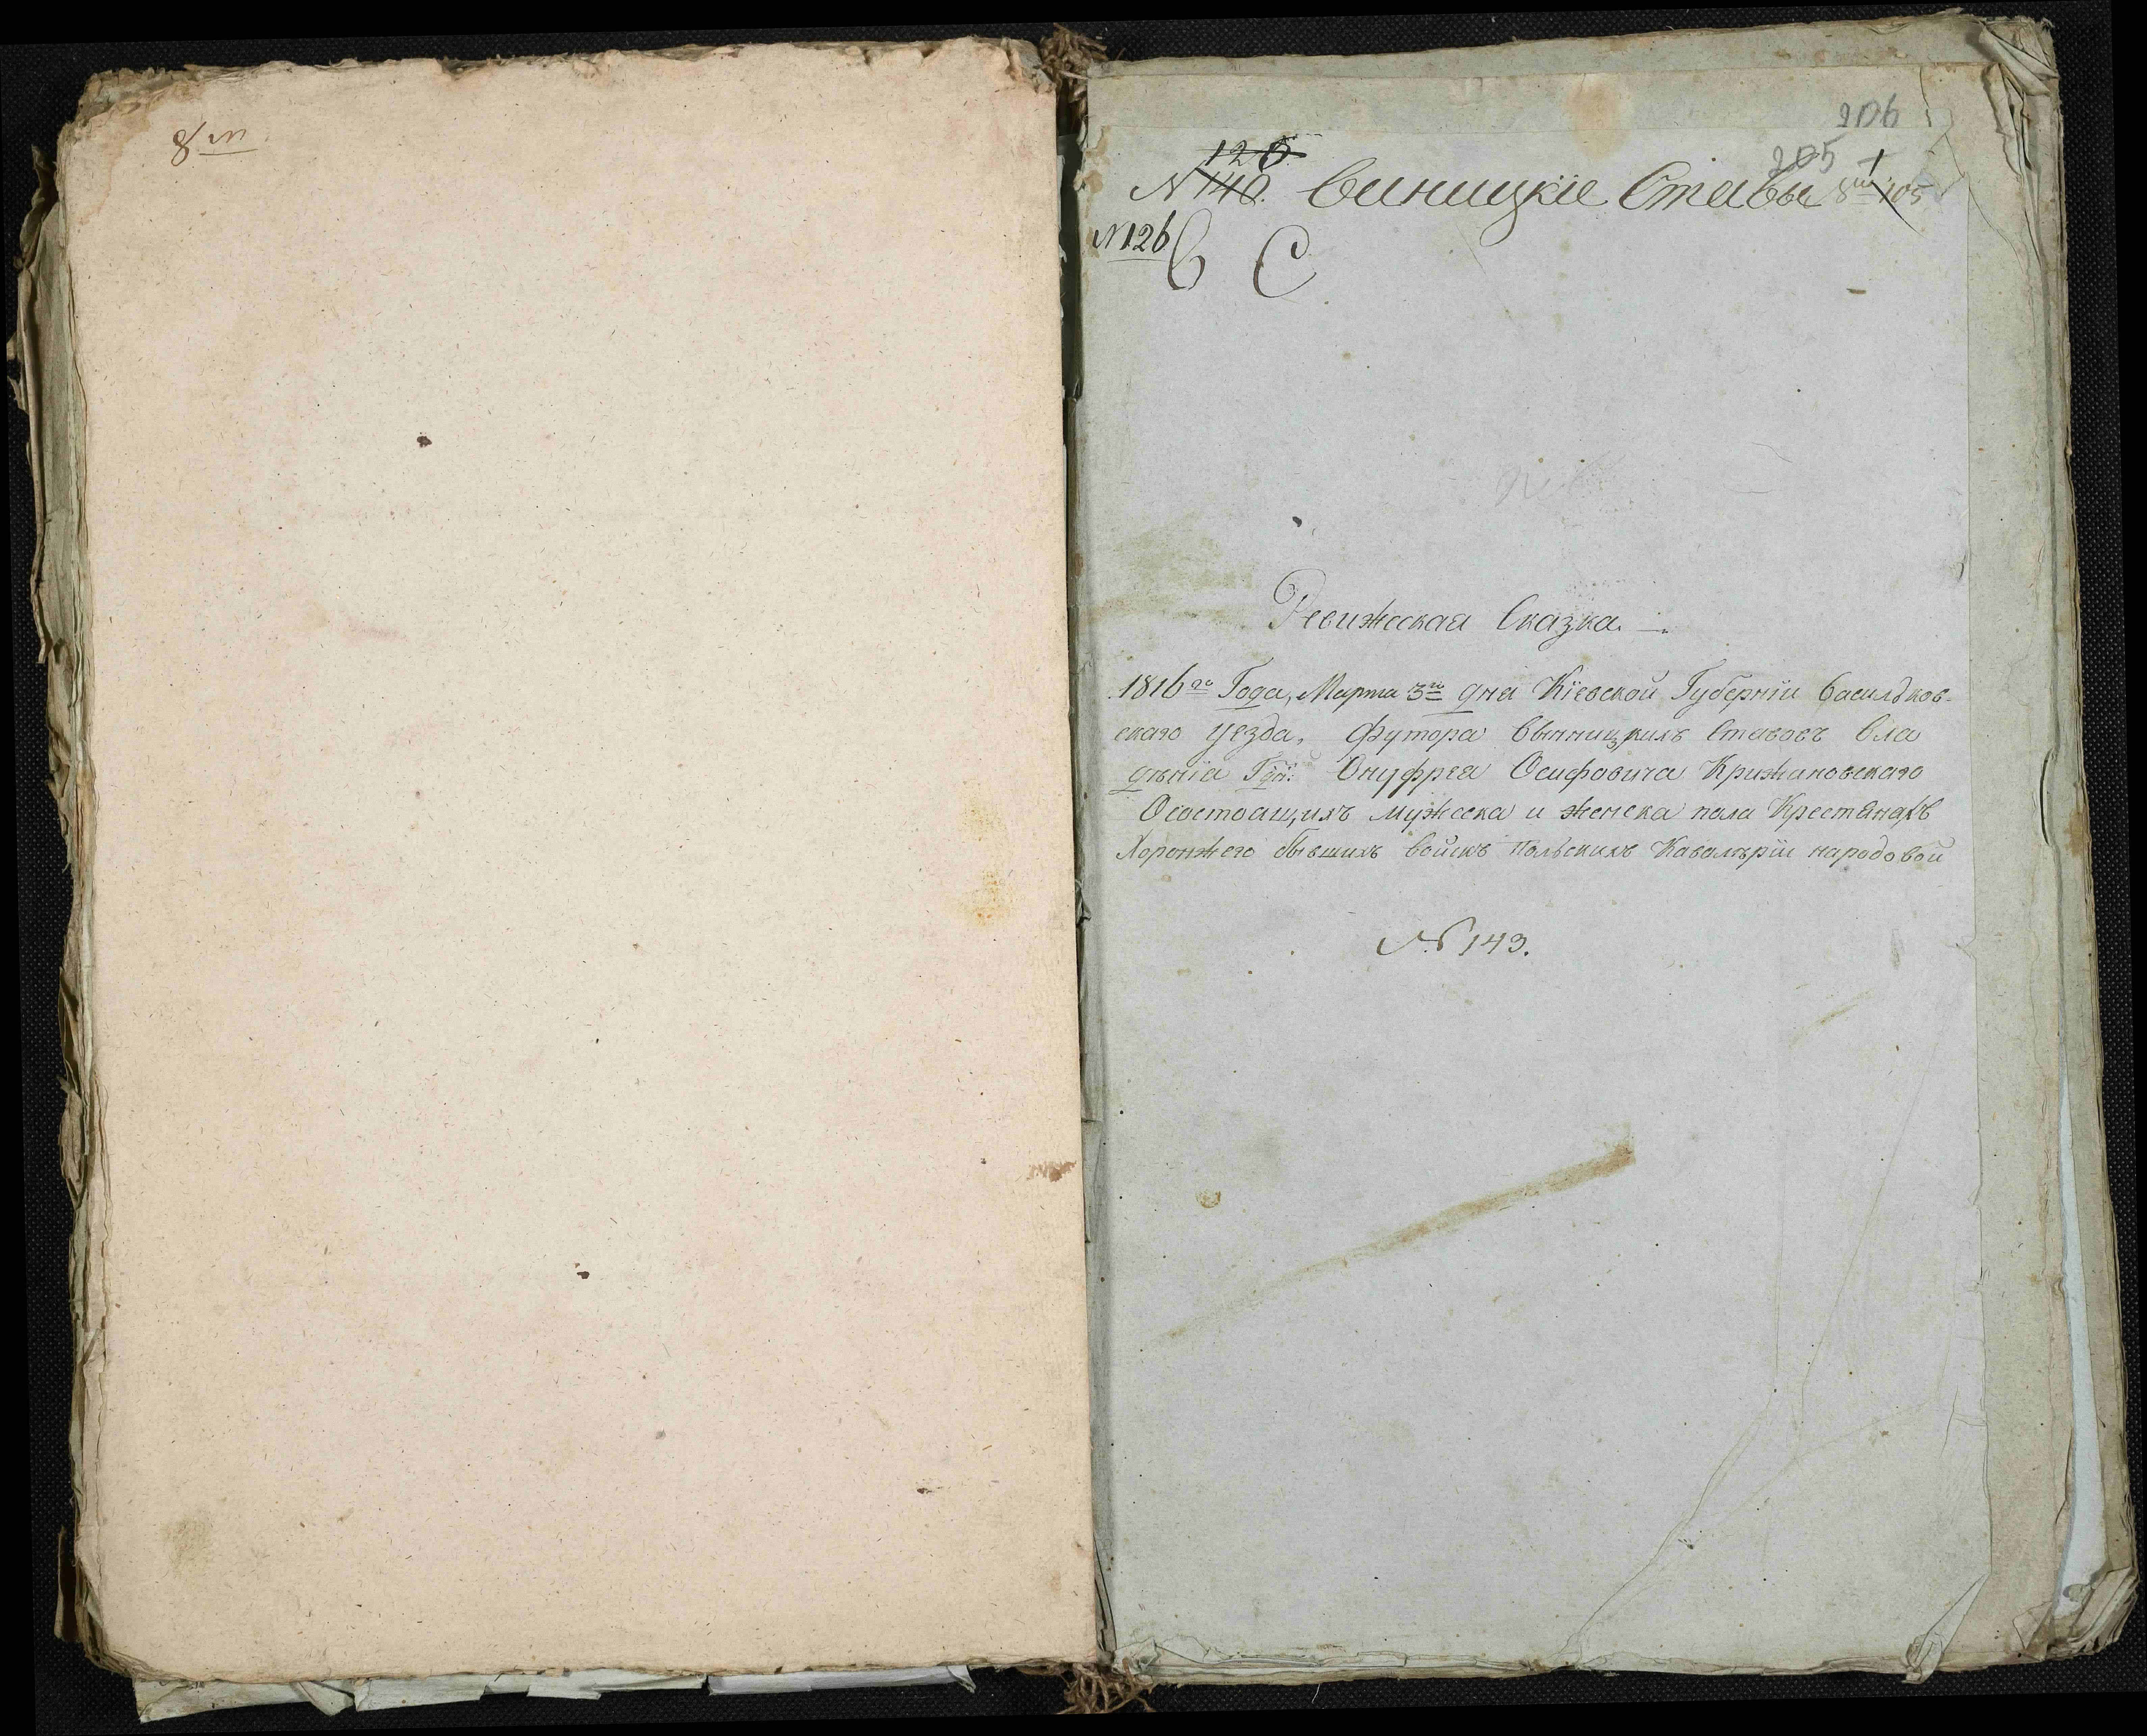 8 м
206
205
126
N 140. Виницкїе Ставы 8 105
N 126
С
Ревижская Сказка.
1816го Года, Марта 3го дня Кїевской Губернїи Васильков-
скаго уезда, Футора Вынницкихъ Ставовъ Вла
денїя Гдн: Онуфрея Осифовича Крижановскаго
Осостоящихъ мужеска и женска пола Крестянахъ
Хоронжего бывшихъ войскъ Польскихъ Кавалѣрїи народовой
N 143.